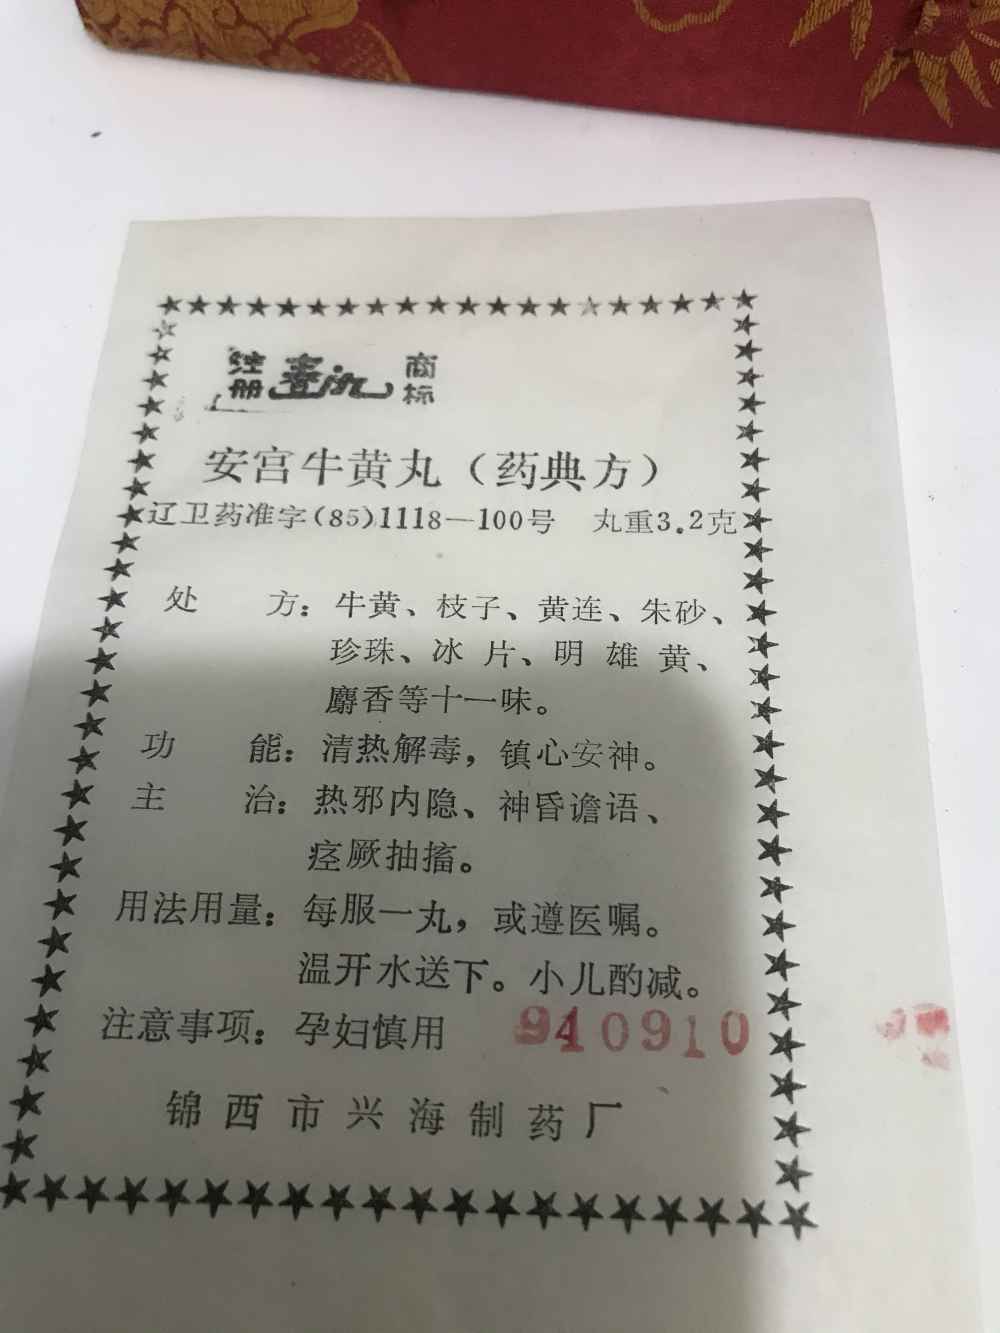 注册 商标
安宫牛黄丸（药典方）
辽卫药准字(85)1118—100号 丸重3.2克
处方：牛黄、枝子、黄连、朱砂、
珍珠、冰片、明雄黄、
麝香等十一味。
功能：清热解毒，镇心安神。
主治：热邪内隐、神昏谵语、
痉厥抽搐。
用法用量：每服一丸，或遵医嘱。
温开水送下。小儿酌减。
注意事项：孕妇慎用 940910
锦西市兴海制药厂